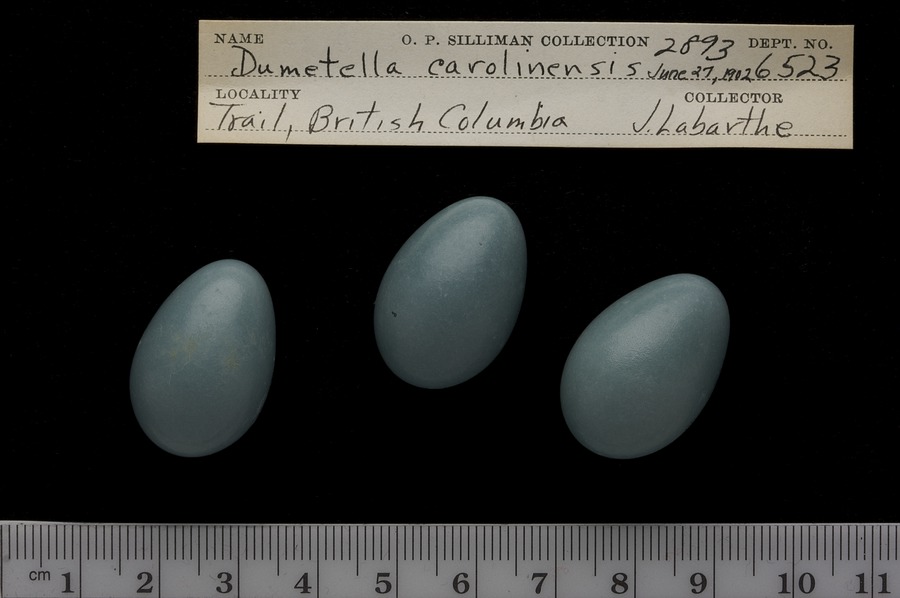 NAME O. P. SILLIMAN COLLECTION 2893 DEPT. NO.
Dumetella carolinensis June 27, 1902 6523
LOCALITY COLLECTOR
Trail, British Columbia J. Labarthe
cm 1 2 3 4 5 6 7 8 9 10 11